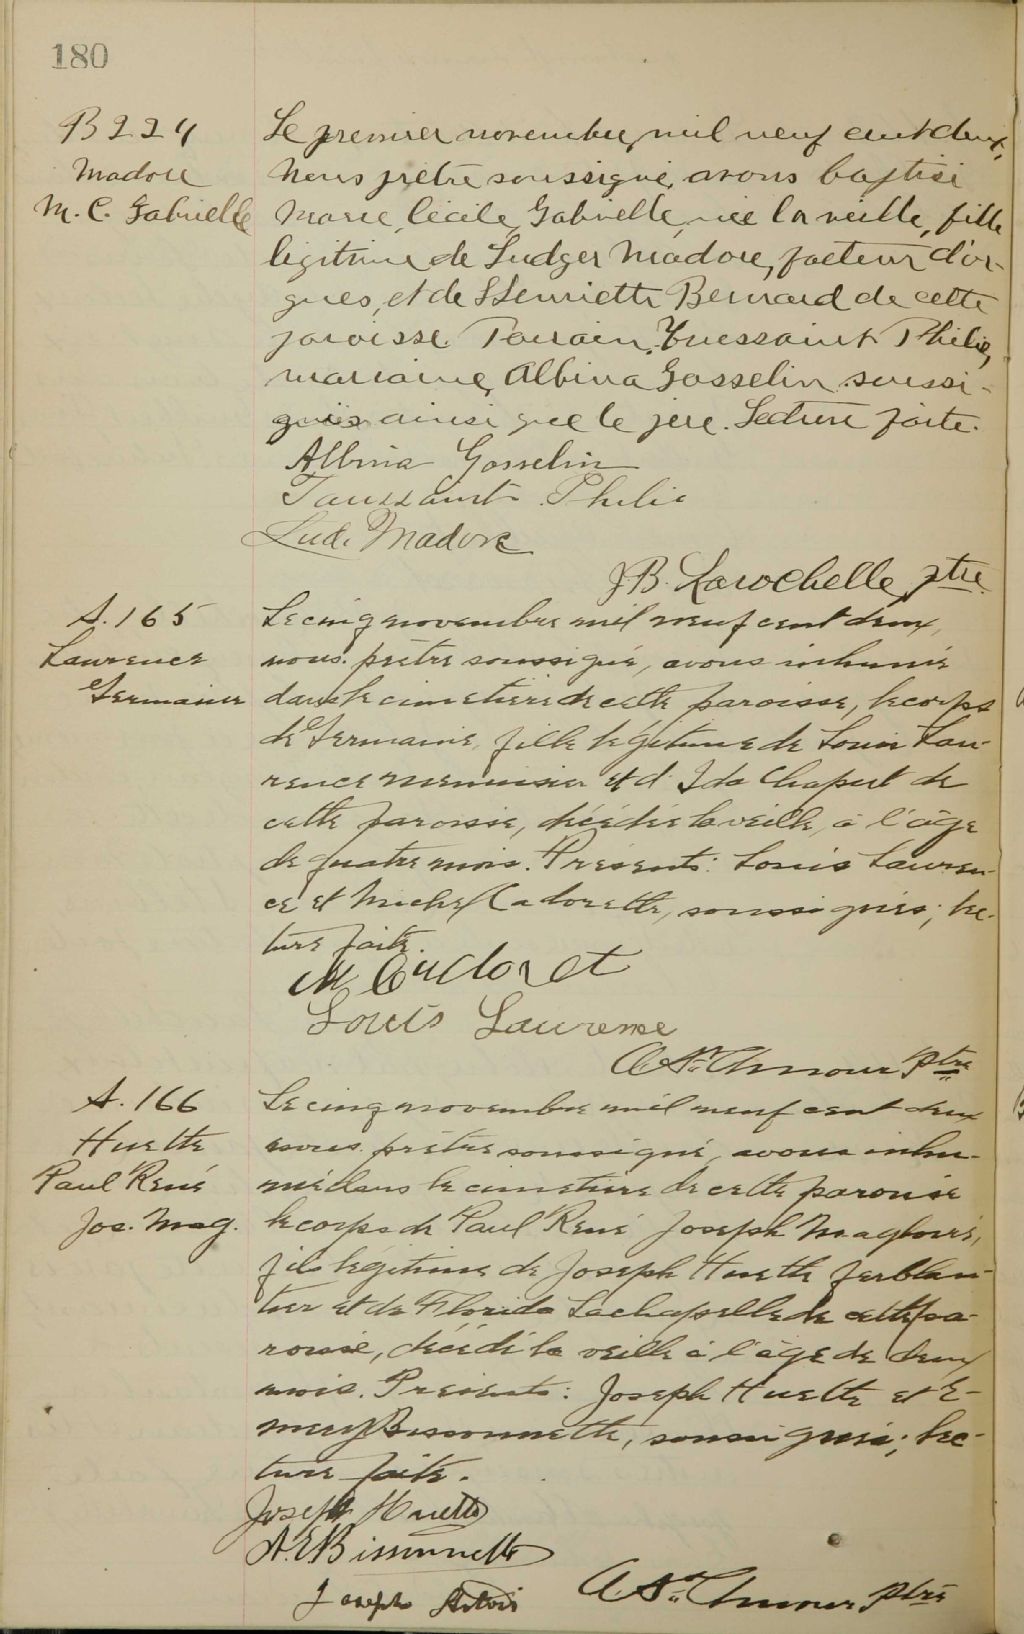 180
B 224
Madore
M. C. Gabrielle
Le premier novembre, mil neuf cent deux,
Nous prêtre soussigné, avons baptisé
Marie, Cécile, Gabrielle, née la veille, fille
légitime de Ludger Madore, facteur d'or-
gues, et de Henriette Bernard de cette
paroisse. Parrain, Toussaint Philie,
marraine, Albina Gosselin soussi-
gnés ainsi que le père. Lecture faite.
Albina Gosselin
Toussaint Philie
Lud. Madore
J B. Larochelle ptre
S. 165
Laurence
Germaine
Le cinq novembre mil neuf cent deux,
nous prêtre soussigné, avons inhumé
dans le cimetière de cette paroisse, le corps
de Germaine, fille légitime de Louis Lau-
rence menuisier et d'Ida Chaput de
cette paroisse, décédée la veille, à l'âge
de quatre mois. Présents: Louis Lauren-
ce et Michel Cadorette, soussignés; lec-
ture faite.
M Cadoret
Louis Laurence
A St. Amour Ptre
S. 166
Huette
Paul René
Jos. Mag.
Le cinq novembre mil neuf cent deux
nous prêtre soussigné, avons inhu-
mé dans le cimetière de cette paroisse
le corps de Paul René Joseph Magloire,
fils légitime de Joseph Huette ferblan-
tier et de Florida Lachapelle de cette pa-
roisse, décédé la veille à l'âge de deux
mois. Présents: Joseph Huette et E-
mery Bissonnette, soussignés; lec-
ture faite.
Joseph Huette
A. E. Bissonnette
Joseph
A St. Amour ptre